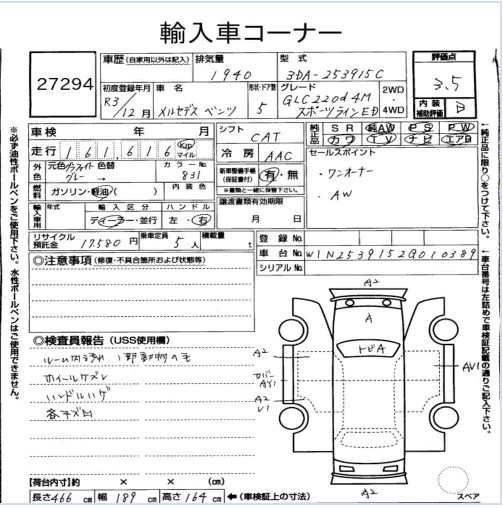 輸入車コーナー
27294
車歴 (自家用以外は記入)
排気量
1940
型式
3DA-253915C
評価点
3.5
内装
補助評価
B
初度登録年月
R3/12月
車名
メルセデス ベンツ
形状・ドア数
5
グレード
GLC220d 4M
スポーツラインED
2WD
・
4WD
車検 年 月
シフト
CAT
純正品
SR 純AW PS PW
カワ TV ナビ エアB
走行 161,616 Km マイル
冷房
AAC
セールスポイント
・ワンオーナー
・AW
外色
元色 グラファイトグレー
色替
→
カラーNo.
831
新車整備手帳
(保証書付)
有・無
※書類と一緒に保管下さい。
燃料
ガソリン・軽油( )
内装色
譲渡書類有効期限
月 日
輸入車用
年式
輸入区分
ディーラー・並行
ハンドル
左・右
リサイクル
預託金
17580 円
乗車定員
5 人
積載量
t
登録No.
車台No. W1N2539152G010389
シリアルNo.
◎注意事項 (修復・不具合箇所および状態等)
◎検査員報告 (USS使用欄)
ルーム内汚れ、1部動物の毛
ホイールキズン
ハンドルハゲ
各キズ凹
A2
A
トビA
A2
カバーAY1
A2
V1
AV1
A2
スペア
(荷台内寸) 約 × × (cm)
長さ 466 cm 幅 189 cm 高さ 164 cm ←(車検証上の寸法)
※必ず油性ボールペンをご使用下さい。水性ボールペンはご使用出来ません。
←純正品に限り○をつけて下さい。
←車台番号は左詰めで車検証記載の通りご記入下さい。